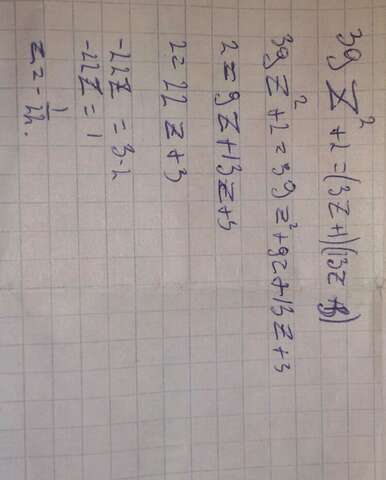 39 z² + 2 = (3z+1)(13z+3)
39 z² + 2 = 39 z² + 9z + 13z + 3
2 = 9z + 13z + 3
2 = 22 z + 3
-22z = 3-2
-22z = 1
z = - 1/22.